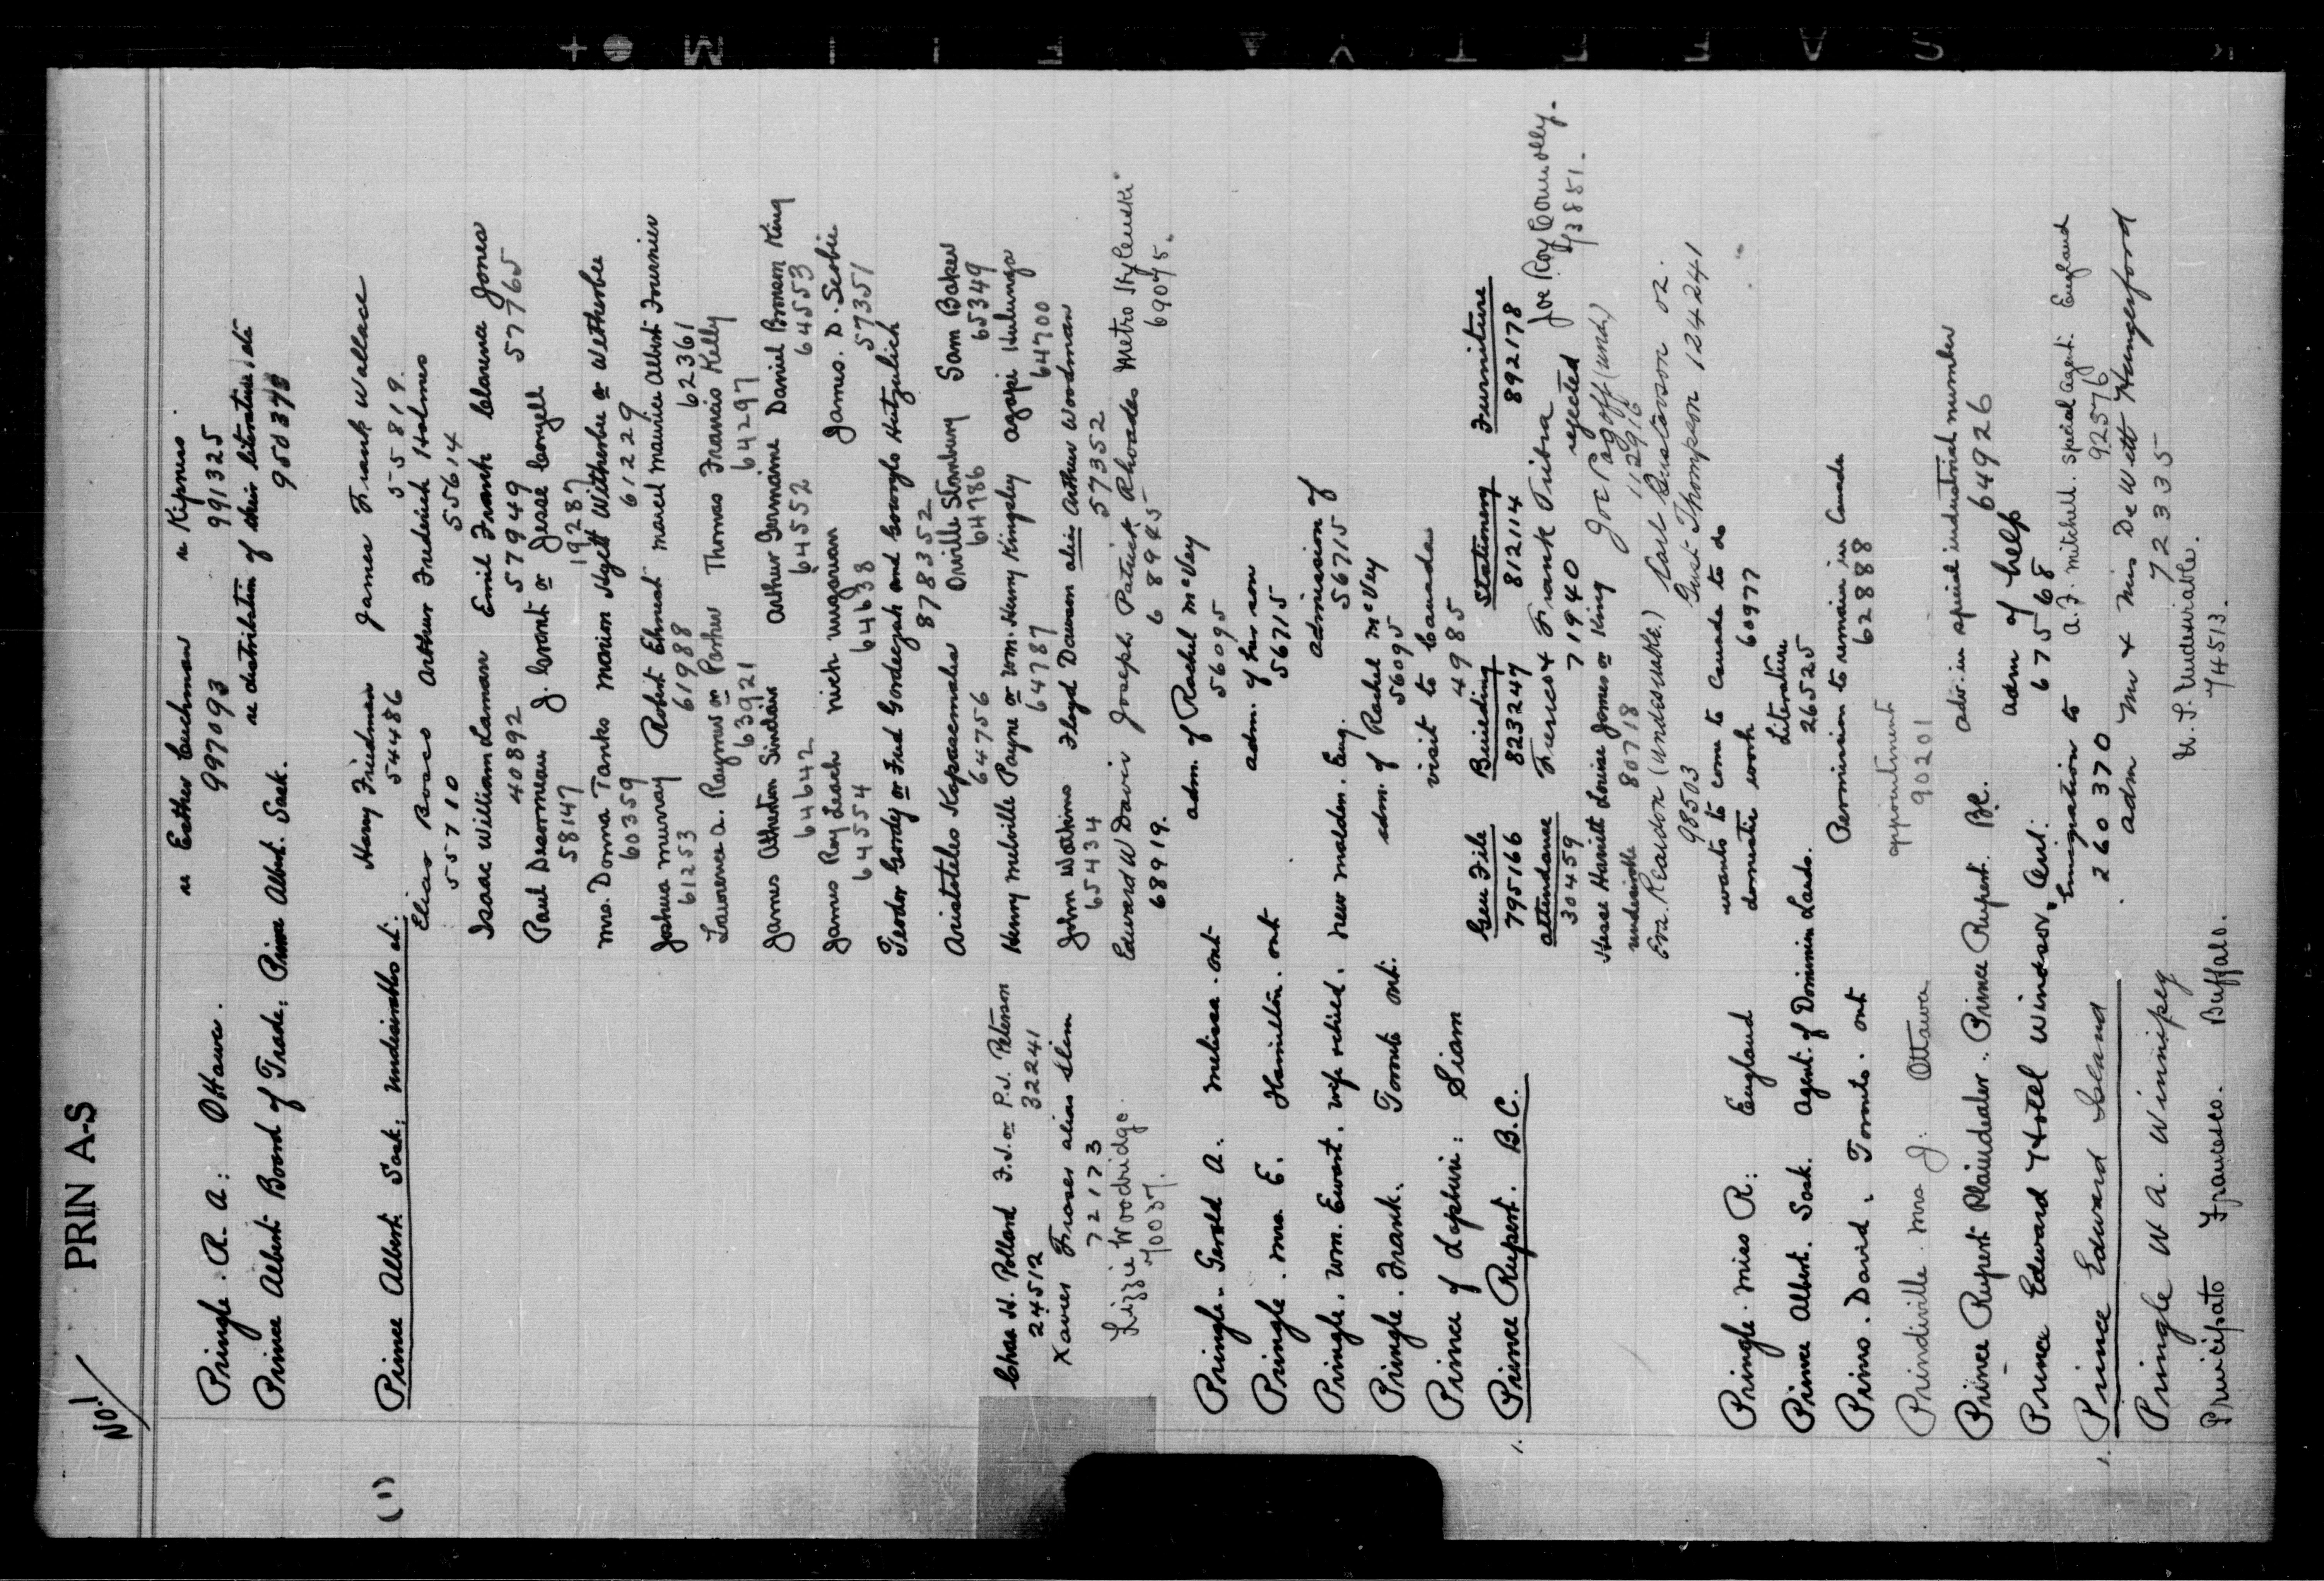 No. 1 PRIN A-S
Pringle. R. A: Ottawa. re Esther Cuchman re Kipness.
997093 991325
Prince Albert Board of Trade, Prince Albert. Sask. re distribution of their literature, etc
950378
(1) Prince Albert. Sask; Undesirables at. Harry Friedman James Frank Wallace
54486 55819.
Elias Bosco Arthur Frederick Holmes
55710 55614
Isaac William Laman Emil Frank Clarence Jones
40892 57949 57765
Paul Desormeau J. Coryell or Jesse Coryell
58147 19287
Mrs. Donna Tanks Marion Hyett Witherbee or Wetherbee
60359 61229
Joshua Murray Robert Ehnest Marcel Maurice Albert Fournier
61253 61988 62361
Lawrence A. Raymer or Parker Thomas Francis Kelly
63921 64297
James Atherton Sinclair Arthur Jermaine Daniel Bronson King
64642 64552 64553
James Roy Leach Nick Mugaruan James. D. Scobie
64554 64638 57351
Teodor Gordy or Fred Gordeczah and Georgko Hutzulich
878352
Aristoteles Kapsaemalis Orville Stembury Sam Baker
64756 64786 65349
Chas H. Pollard F.J. or P.J. Peterson Henry Melville Payne or Wm. Henry Kingsley Agapi Hulunga
24512 32241 64787 64700
Xavier Fraser alias Slim John Watkins Floyd Dawson alias Arthur Woodman
72173 65434 57352
Lizzie Woodridge. Edward W Davis Joseph Patrick Rhoades Metro Skylenski
70037. 68919. 68945 69045.
Pringle. Gerald A. Melissa. Ont adm. of Rachel McVey
56095
Pringle. Mrs. E. Hamilton. Ont adm. of her son
56715
Pringle. Wm. Ewart. wife & child. New Malden. Eng. admission of
56715
Pringle. Frank. Toronto Ont. adm. of Rachel McVey
56095
Prince of Lophuri: Siam visit to Canada
4985
1. Prince Rupert. B.C. Gen File Building Stationery Furniture
795166 823247 812114 892178
Attendance Frences & Frank Tribra Joe Roy Connolly.
30459 71940 rejected 73851.
Hesse Harriett Louise Jones or King Joe Pagoff (undes)
undesirable 80718 112916
Era. Reardon (undesirable) Carl Gustavson or.
98503 Gust Thompson 124241
Pringle. Miss R: England wants to come to Canada to do
domestic work 60977
Prince Albert. Sask. Agent. of Dominion Lands. Literature
26525
Primo. David. Toronto. Ont Permission to remain in Canada
62888
Prindiville Mrs J. Ottawa appointment
90201
Prince Rupert Plaindealer. Prince Rupert. B.C. adv. in special industrial number
64926
Prince Edward Hotel Windsor, Ont. adm of help
67568
1. Prince Edward Island Emigration to A.F. Mitchell. Special Agent. England
260370 92576
Pringle W A. Winnipeg adm Mr & Mrs De Witt Hungerford
72335
Principato Francesco. Buffalo. U.S. Undesirable.
74513.
SAFETY FILM